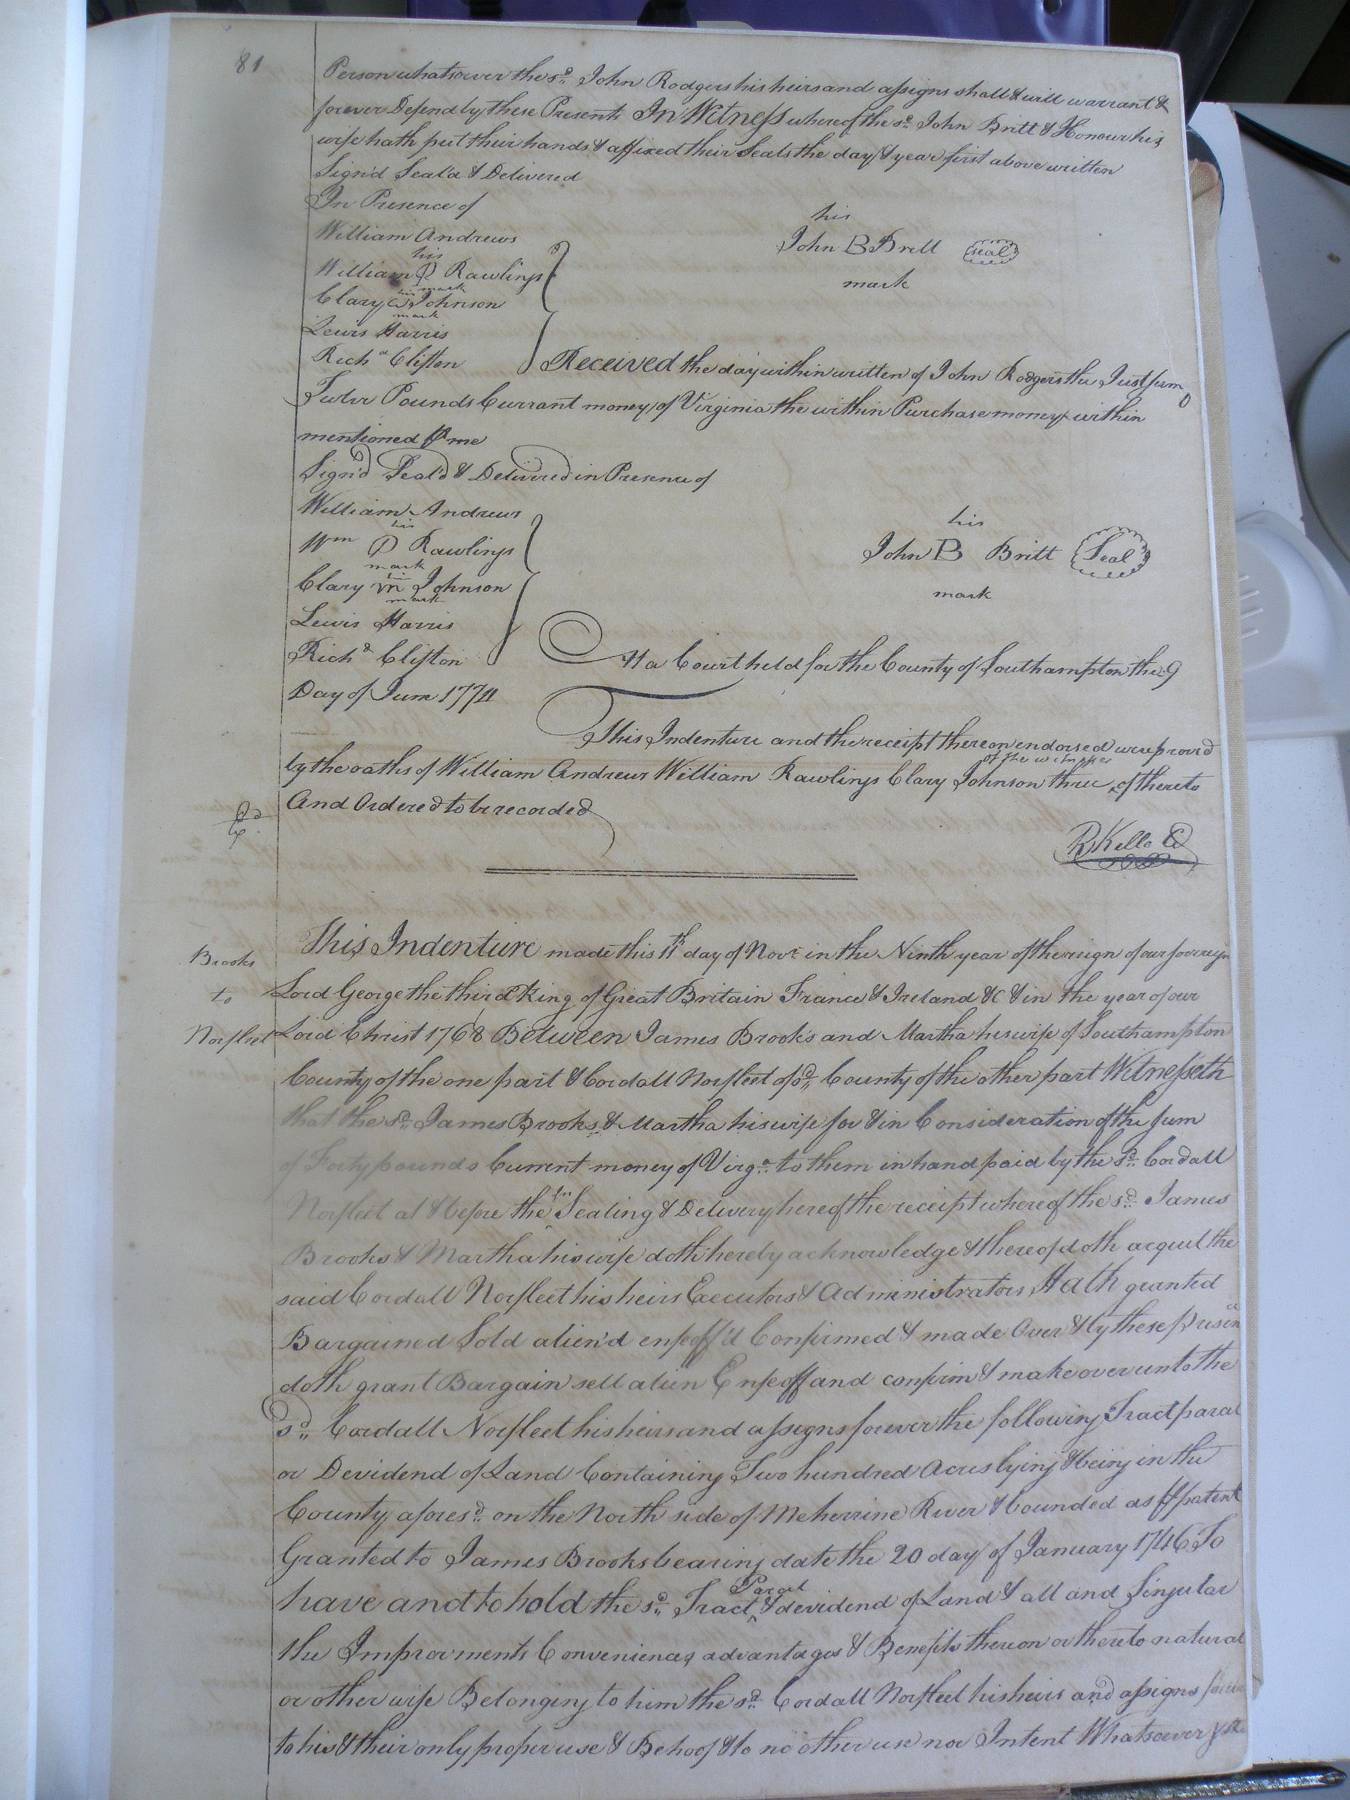 81
Person whatsoever the sd. John Rodgers his heirs and assigns shall & will warrant &
forever Defend by these Presents In Witness whereof the sd. John Britt & Honour his
wife hath put their hands & affixed their Seals the day & year first above written
Sign'd Seal'd & Delivered
In Presence of
William Andrews
his
his
John B Britt seal
William P Rawlings
mark
mark
his
Clary Johnson
mark
Lewis Harris
Richd Clifton Received the day within written of John Rodgers the Just sum
Twelve Pounds Currant money of Virginia the within Purchase money within
mentioned me
Sign'd Seal'd & Delivered in Presence of
William Andrews
his
his
Wm P Rawlings
John B Britt Seal
mark
mark
Clary m Johnson
mark
Lewis Harris
Richd Clifton At a Court held for the County of Southampton the 9
Day of June 1774
This Indenture and the receipt thereon endorsed were prov'd
of the witnesses
by the oaths of William Andrews William Rawlings Clary Johnson three of thereto
And Ordered to be recorded
R Kello
Brooks
to
Norfleet
This Indenture made this 11th day of Novr in the Ninth year of the reign of our sovreign
Lord George the third King of Great Britain France & Ireland &C & in the year of our
Lord Christ 1768 Between James Brooks and Martha his wife of Southampton
County of the one part & Cordall Norfleet of sd. County of the other part Witnesseth
that the sd. James Brooks & Martha his wife for & in Consideration of the sum
of Forty pounds Current money of Virga. to them in hand paid by the sd. Cordall
Norfleet at & before the Sealing & Delivery hereof the receipt whereof the sd. James
Brooks & Martha his wife doth hereby acknowledge & thereof doth acquit the
said Cordall Norfleet his heirs Executors & Administrators Hath granted
Bargained Sold alien'd enfeoff'd Confirmed & made Over & by these
doth grant Bargain sell alien Enfeoff and confirm & make over unto the
sd. Cordall Norfleet his heirs and assigns forever the following Tract parcel
or Devidend of Land Containing Two hundred Acres lying & being in the
County afores'd. on the North side of Meherrine River & bounded as patent
Granted to James Brooks bearing date the 20 day of January 1746 To
Parcel
have and to hold the sd. Tract & devidend of Land & all and Singular
the Improvments Conveniences advantages & Benefits thereon or thereto natural
or other wise Belonging to him the sd. Cordall Norfleet his heirs and assigns
to his & their only proper use & Behoof & to no other use nor Intent Whatsoever